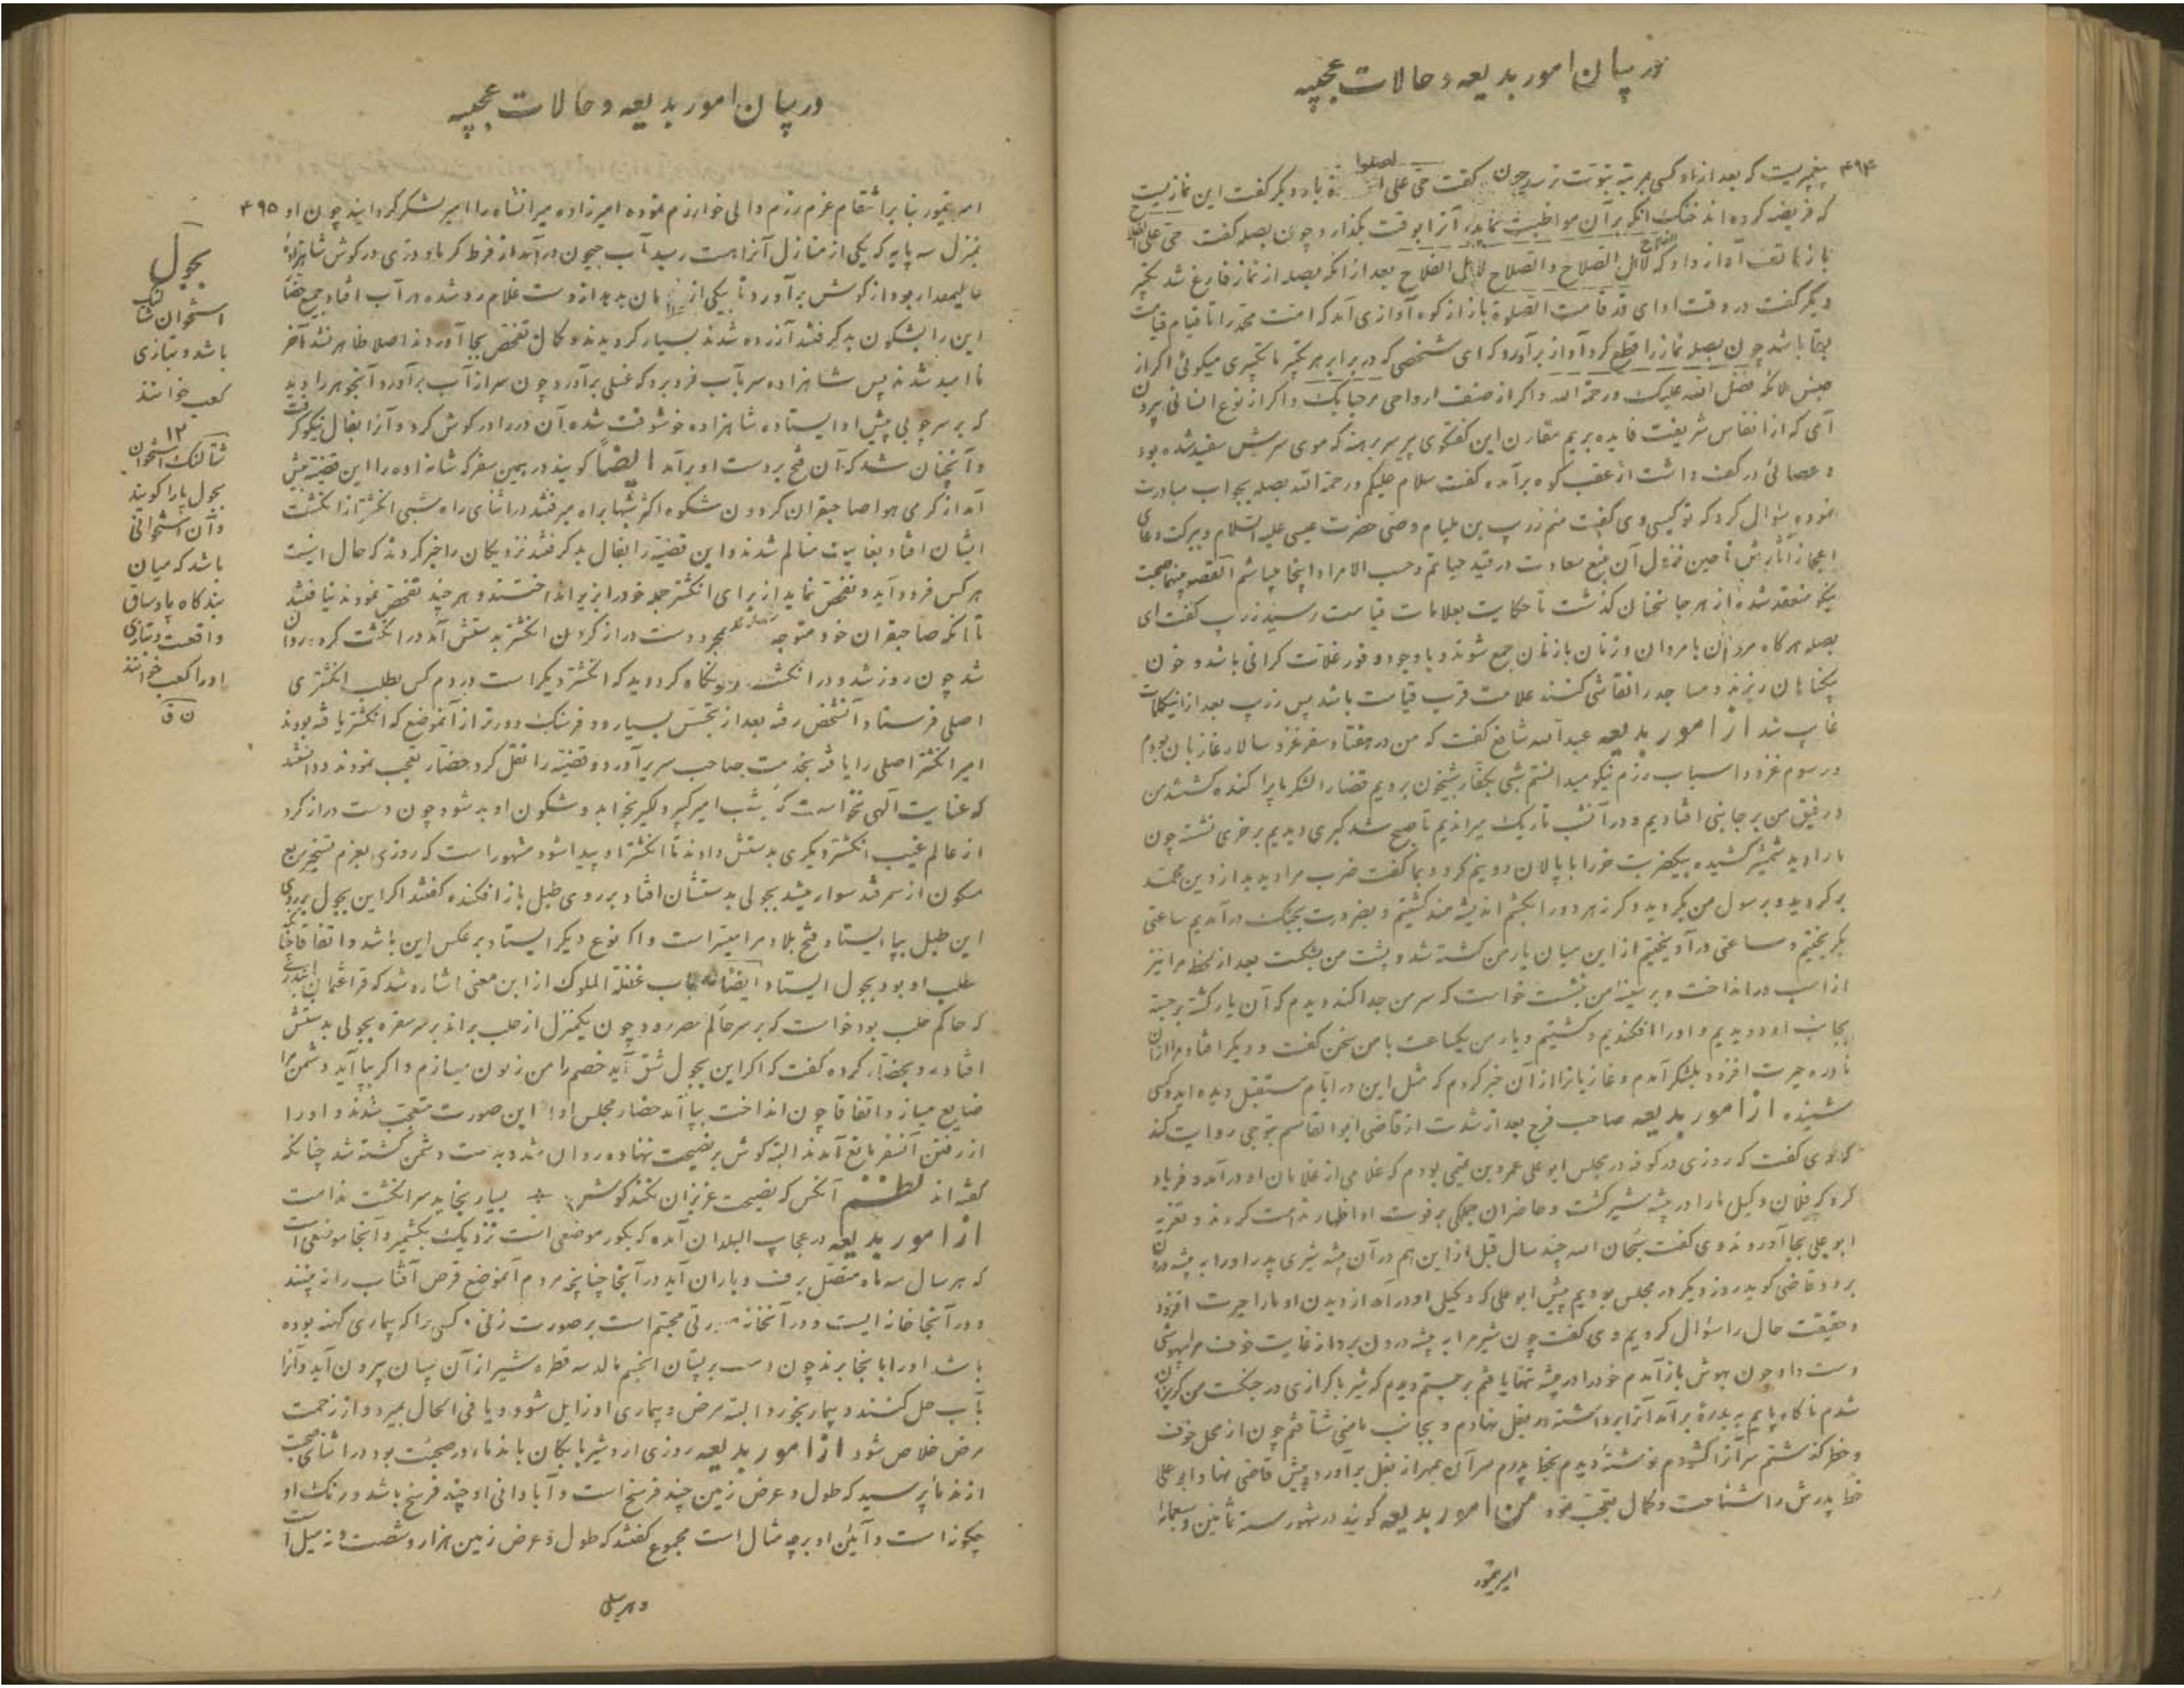 در بیان امور بدیعه و حالات عجیبه
۴۹۴
پیغمبریست که بعد از او کسی بمرتبهٔ نبوت نرسد چون گفت حی علی الصلوة بار دیگر گفت این نمازیست
که فریضه کرده‌اند خنک آنکو بر آن مواظبت نماید و آنرا بوقت بگذارد و چون بصله گفت حی علی الفلاح
باز هاتف آواز داد که لاهل الصلاح والصلاح لاهل الفلاح بعد از آنکه بصله از نماز فارغ شد
دیگر گفت در وقت ادای قد قامت الصلوة باز از کوه آوازی آمد که امت محمد را تا قیام قیامت
بقا باشد چون بصله نماز را قطع کرد آواز برآورد که ای شخصی که در برابر هر تکبیر ما تکبیری میگوئی اگر از
جنس ملائکه فضل الله علیک ورحمة الله و اگر از صنف ارواحی مرحبا بک و اگر از نوع انسانی بیرون
آی که از انفاس شریفت فایده بریم مقارن این گفتگوی پیر سر برهنه که موی سرش سفید شده بود
و عصائی در کف داشت از عقب کوه برآمده گفت سلام علیکم ورحمة الله بصله بجواب مبادرت
نموده سؤال کرد که تو کیسی وی گفت منم زرپ بن ملیام وصی حضرت عیسی علیه السلام و ببرکت دعای
اعجاز آثارش تا حین نزول آن منبع سعادت در قید حیاتم و حسب الامر او اینجا میباشم القصه میانه صحبت
نیکو منعقد شده از هر جا سخنان گذشت تا حکایت بعلامات قیامت رسید زرپ گفت ای
بصله هرگاه مردان با مردان و زنان با زنان جمع شوند و با وجود وفور غلات گرانی باشد و خون
بیگناهان ریزند و مساجد را نقاشی کنند علامت قرب قیامت باشد پس زرپ بعد از این کلمات
غایب شد از امور بدیعه عبدالله شافع گفت که من در هفتاد سفر غزو سالار غازیان بودم
و رسوم غزو و اسباب رزم نیکو میدانستم شبی بکفار شبیخون بردیم قضا را لشکر ما پراکنده گشتند من
و رفیق من بر جانبی افتادیم و در آن شب تاریک میراندیم تا صبح شد گبری دیدیم بر خری نشسته چون
ما را دید شمشیر کشیده بیکضربت خر را با پالان دو نیم کرد و بما گفت ضرب مرا دیدید از دین محمد
برگردید و برسول من بگروید و گرنه هر دو را بکشم اندیشه‌مند گشتیم و بضرورت بجنگ درآمدیم ساعتی
بگریختیم و ساعتی درآویختیم از این میان یار من کشته شد و پشت من بشکست بعد از لحظه مرا نیز
از اسب درانداخت و بر سینهٔ من نشست خواست که سر من جدا کند دیدم که آن یار کشته برجسته
بجانب او دویدیم و او را افکندیم و کشتیم و یار من یکساعت با من سخن گفت و دیگر افتاد مرا از آن
نادره حیرت افزود بلشکر آمدم و غازیانرا از آن خبر کردم که مثل این در ایام مستقبل دیده‌اید و کسی
شنیده از امور بدیعه صاحب فرج بعد از شدت از قاضی ابوالقاسم تنوخی روایت کند
که وی گفت که روزی در کوفه در مجلس ابوعلی عمر بن یحیی بودم که غلامی از غلامان او درآمد و فریاد
کرد که فلان وکیل ما را در بیشه شیر کشت و حاضران جملگی بر فوت او اظهار ندامت کردند و تعزیه
ابوعلی بجا آوردند وی گفت سبحان الله چند سال قبل از این هم در آن بیشه شیری پدر او را به بیشه درون
برد و قاضی گوید روز دیگر در مجلس بودیم پیش ابوعلی که وکیل او درآمد از دیدن او ما را حیرت افزود
و حقیقت حال را سؤال کردیم وی گفت چون شیر مرا به بیشه درون برد از غایت خوف مرا بیهوشی
دست داد چون بهوش باز آمدم خود را در بیشه تنها یافتم برجستم دیدم که شیر با گرازی در جنگست من گریزان
شدم ناگاه پایم به بدرهٔ برآمد آنرا برداشته در بغل نهادم و بجانب مامنی شتافتم چون از محل خوف
و خطر گذشتم سر آنرا گشودم نوشتهٔ دیدم بخط پدرم سر آن بمهر از بغل برآورد و پیش قاضی نهاد ابوعلی
خط پدرش را شناخت و کمال تعجب نمود من امور بدیعه گویند در شهور سنه ثمانین و سبعمائه
امیر تیمور
در بیان امور بدیعه و حالات عجیبه
۴۹۵
امیر تیمور بنا بر انتقام عزم رزم والی خوارزم نموده امیرزاده میرانشاه را امیر لشکر گردانید چون او
بمنزل سه پایه که یکی از منازل آنراهست رسید آب جیحون درآمد از فرط گرما و دزی در گوش شاهزادهٔ
عالیمقدار بود از گوش برآورد تا بیکی از مان بدهد از دست غلام رد شده در آب افتاد جمع حضار
این را بشگون بد گرفتند آزرده شدند بسیار گردیدند و کمال تفحص بجا آوردند اصلا ظاهر نشد آخر
ناامید شدند پس شاهزاده سر بآب فرو برد که غسلی برآورد چون سر از آب برآورد آنجوهر را دید
که بر سر چوبی پیش او ایستاده شاهزاده خوشوقت شده آن در را در گوش کرد و آنرا بفال نیکو گرفت
و آنچنان شد که آن فتح بر دست او برآمد ایضاً گویند در همین سفر که شاهزاده را این قضیه پیش
آمد از گرمی هوا صاحبقران گردون شکوه اکثر شبها براه میرفتند در اثنای راه شبی انگشتر از انگشت
ایشان افتاد بغایت متالم شدند و این قضیه را بفال بد گرفتند نزدیکان را خبر کردند که حال اینست
هر کس فرود آید و تفحص نماید از برای انگشتر جمله خود را بزیر انداختند و هر چند تفحص نمودند نیافتند
تا آنکه صاحبقران خود متوجه بمجرد دست دراز کردن انگشتر بدستش آمد در انگشت کرد روان
شد چون روز شد و در انگشت نگاه کرد دید که انگشتر دیگر است در دم کس بطلب انگشتری
اصلی فرستاد آنشخص رفته بعد از تجسس بسیار دو فرسنگ دورتر از آنموضع که انگشتر یافته بودند
امیر انگشتر اصلی را یافته بخدمت صاحب سریر آورد و قضیه را نقل کرد حضار تعجب نمودند و دانستند
که عنایت الهی نخواست که شب امیر کبیر دلگیر بخوابد و شگون او بد شود چون دست دراز کرد
از عالم غیب انگشتر دیگری بدستش دادند تا انگشتر او پیدا شود مشهور است که روزی بعزم تسخیر ربع
مسکون از سمرقند سوار میشد بجولی بدستشان افتاد بر روی طبل باز افکنده گفتند اگر این بجول بر روی
این طبل بپا ایستاد فتح بلاد مرا میسر است و اگر نوع دیگر ایستاد بر عکس این باشد و اتفاقا چنانکه
مطلب او بود بجول ایستاد ایضاً در کتاب غفلة الملوک از این معنی اشاره شد که قراعثمان
که حاکم حلب بود خواست که بر سر حاکم مصر رود چون یکمنزل از حلب براند بر سر سفره بجولی بدستش
افتاد رو بحضار کرده گفت که اگر این بجول شق آید خصم را من زبون میسازم و اگر بپا آید دشمن مرا
ضایع میسازد اتفاقا چون انداخت بپا آمد حضار مجلس او از این صورت متعجب شدند و او را
از رفتن آنسفر مانع آمدند البته گوش بر نصیحت ننهاده روان شد و بدست دشمن کشته شد چنانکه
گفته‌اند نظم آنکس که نصیحت عزیزان نکند گوش بسیار بخاید سر انگشت ندامت
از امور بدیعه در عجایب البلدان آمده که بکور موضعی است نزدیک بکشمیر و آنجا موضعی است
که هر سال سه ماه متصل برف و باران آید در آنجا چنانچه مردم آنموضع قرص آفتاب را نه بینند
و در آنجا خانه ایست و در آنخانه صورتی مجسم است بر صورت زنی کسی را که بیماری کهنه بوده
باشد او را بآنجا برند چون دست بر پستان آنجسم مالد سه قطره شیر از آن پستان بیرون آید و آنرا
بآب حل کنند و بیمار بخورد البته مرض و بیماری او زایل شود و یا فی الحال بمیرد و از زحمت
مرض خلاص شود از امور بدیعه روزی اردشیر بابکان با ندماء در صحبت بود در اثنای صحبت
از ندما پرسید که طول و عرض زمین چند فرسخ است و آبادانی او چند فرسخ باشد و رنگ او
چگونه است و آئین او بر چه مثال است مجموع گفتند که طول و عرض زمین هزار و شصت و نه میل است
و هر میلی
بجول
استخوان شتالنگ
باشد و بتازی
کعب خوانند
۱۲
شتالنگ استخوان
بجول پا را گویند
و آن استخوانی
باشد که میان
بندگاه پا و ساق
واقعست و بتازی
او را کعب خوانند
ن ق